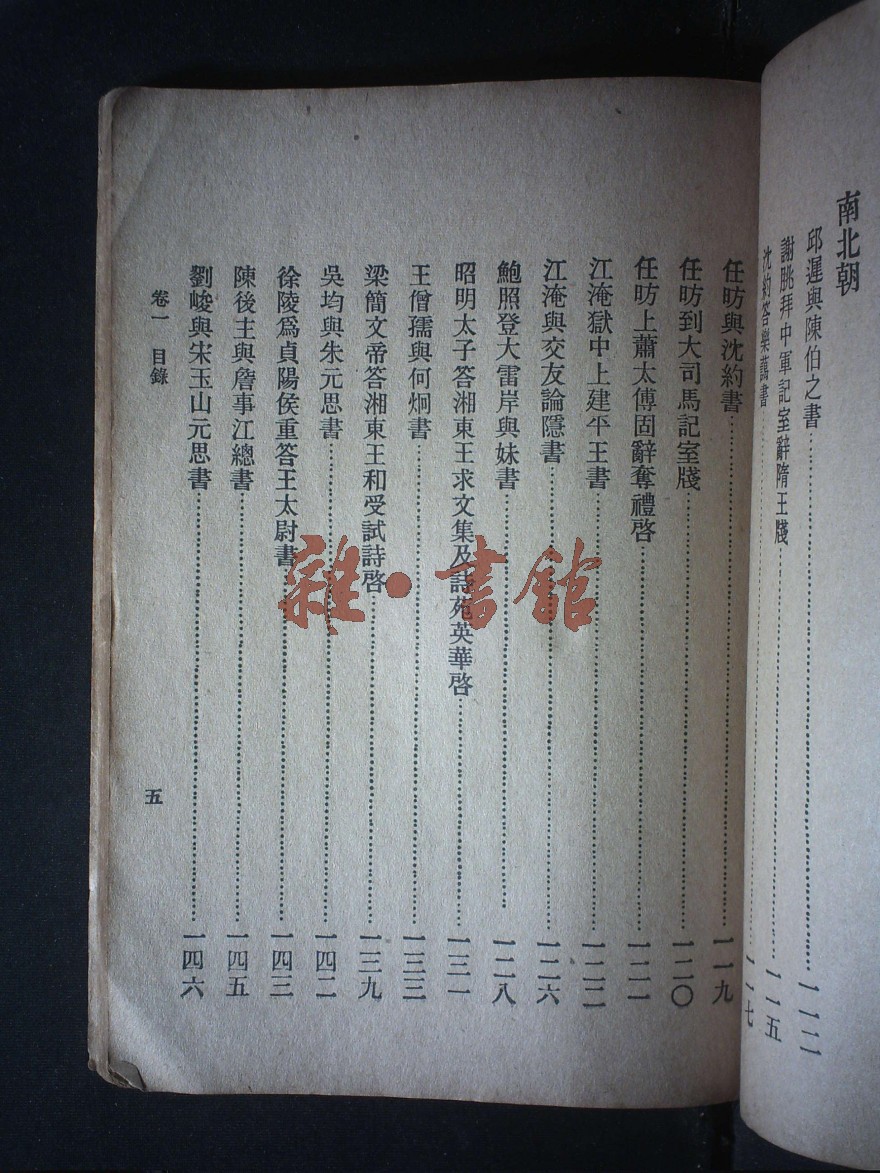 南北朝
邱遲與陳伯之書……一一二
謝朓拜中軍記室辭隋王牋……一一五
沈約答樂藹書……一一七
任昉與沈約書……一一九
任昉到大司馬記室牋……一二〇
任昉上蕭太傅固辭奪禮啓……一二一
江淹獄中上建平王書……一二二
江淹與交友論隱書……一二六
鮑照登大雷岸與妹書……一二八
昭明太子答湘東王求文集及詩苑英華啓……一三一
王僧孺與何炯書……一三三
梁簡文帝答湘東王和受試詩啓……一三九
吳均與朱元思書……一四二
徐陵爲貞陽侯重答王太尉書……一四三
陳後主與詹事江總書……一四五
劉峻與宋玉山元思書……一四六
卷一 目錄
五
雜·書館